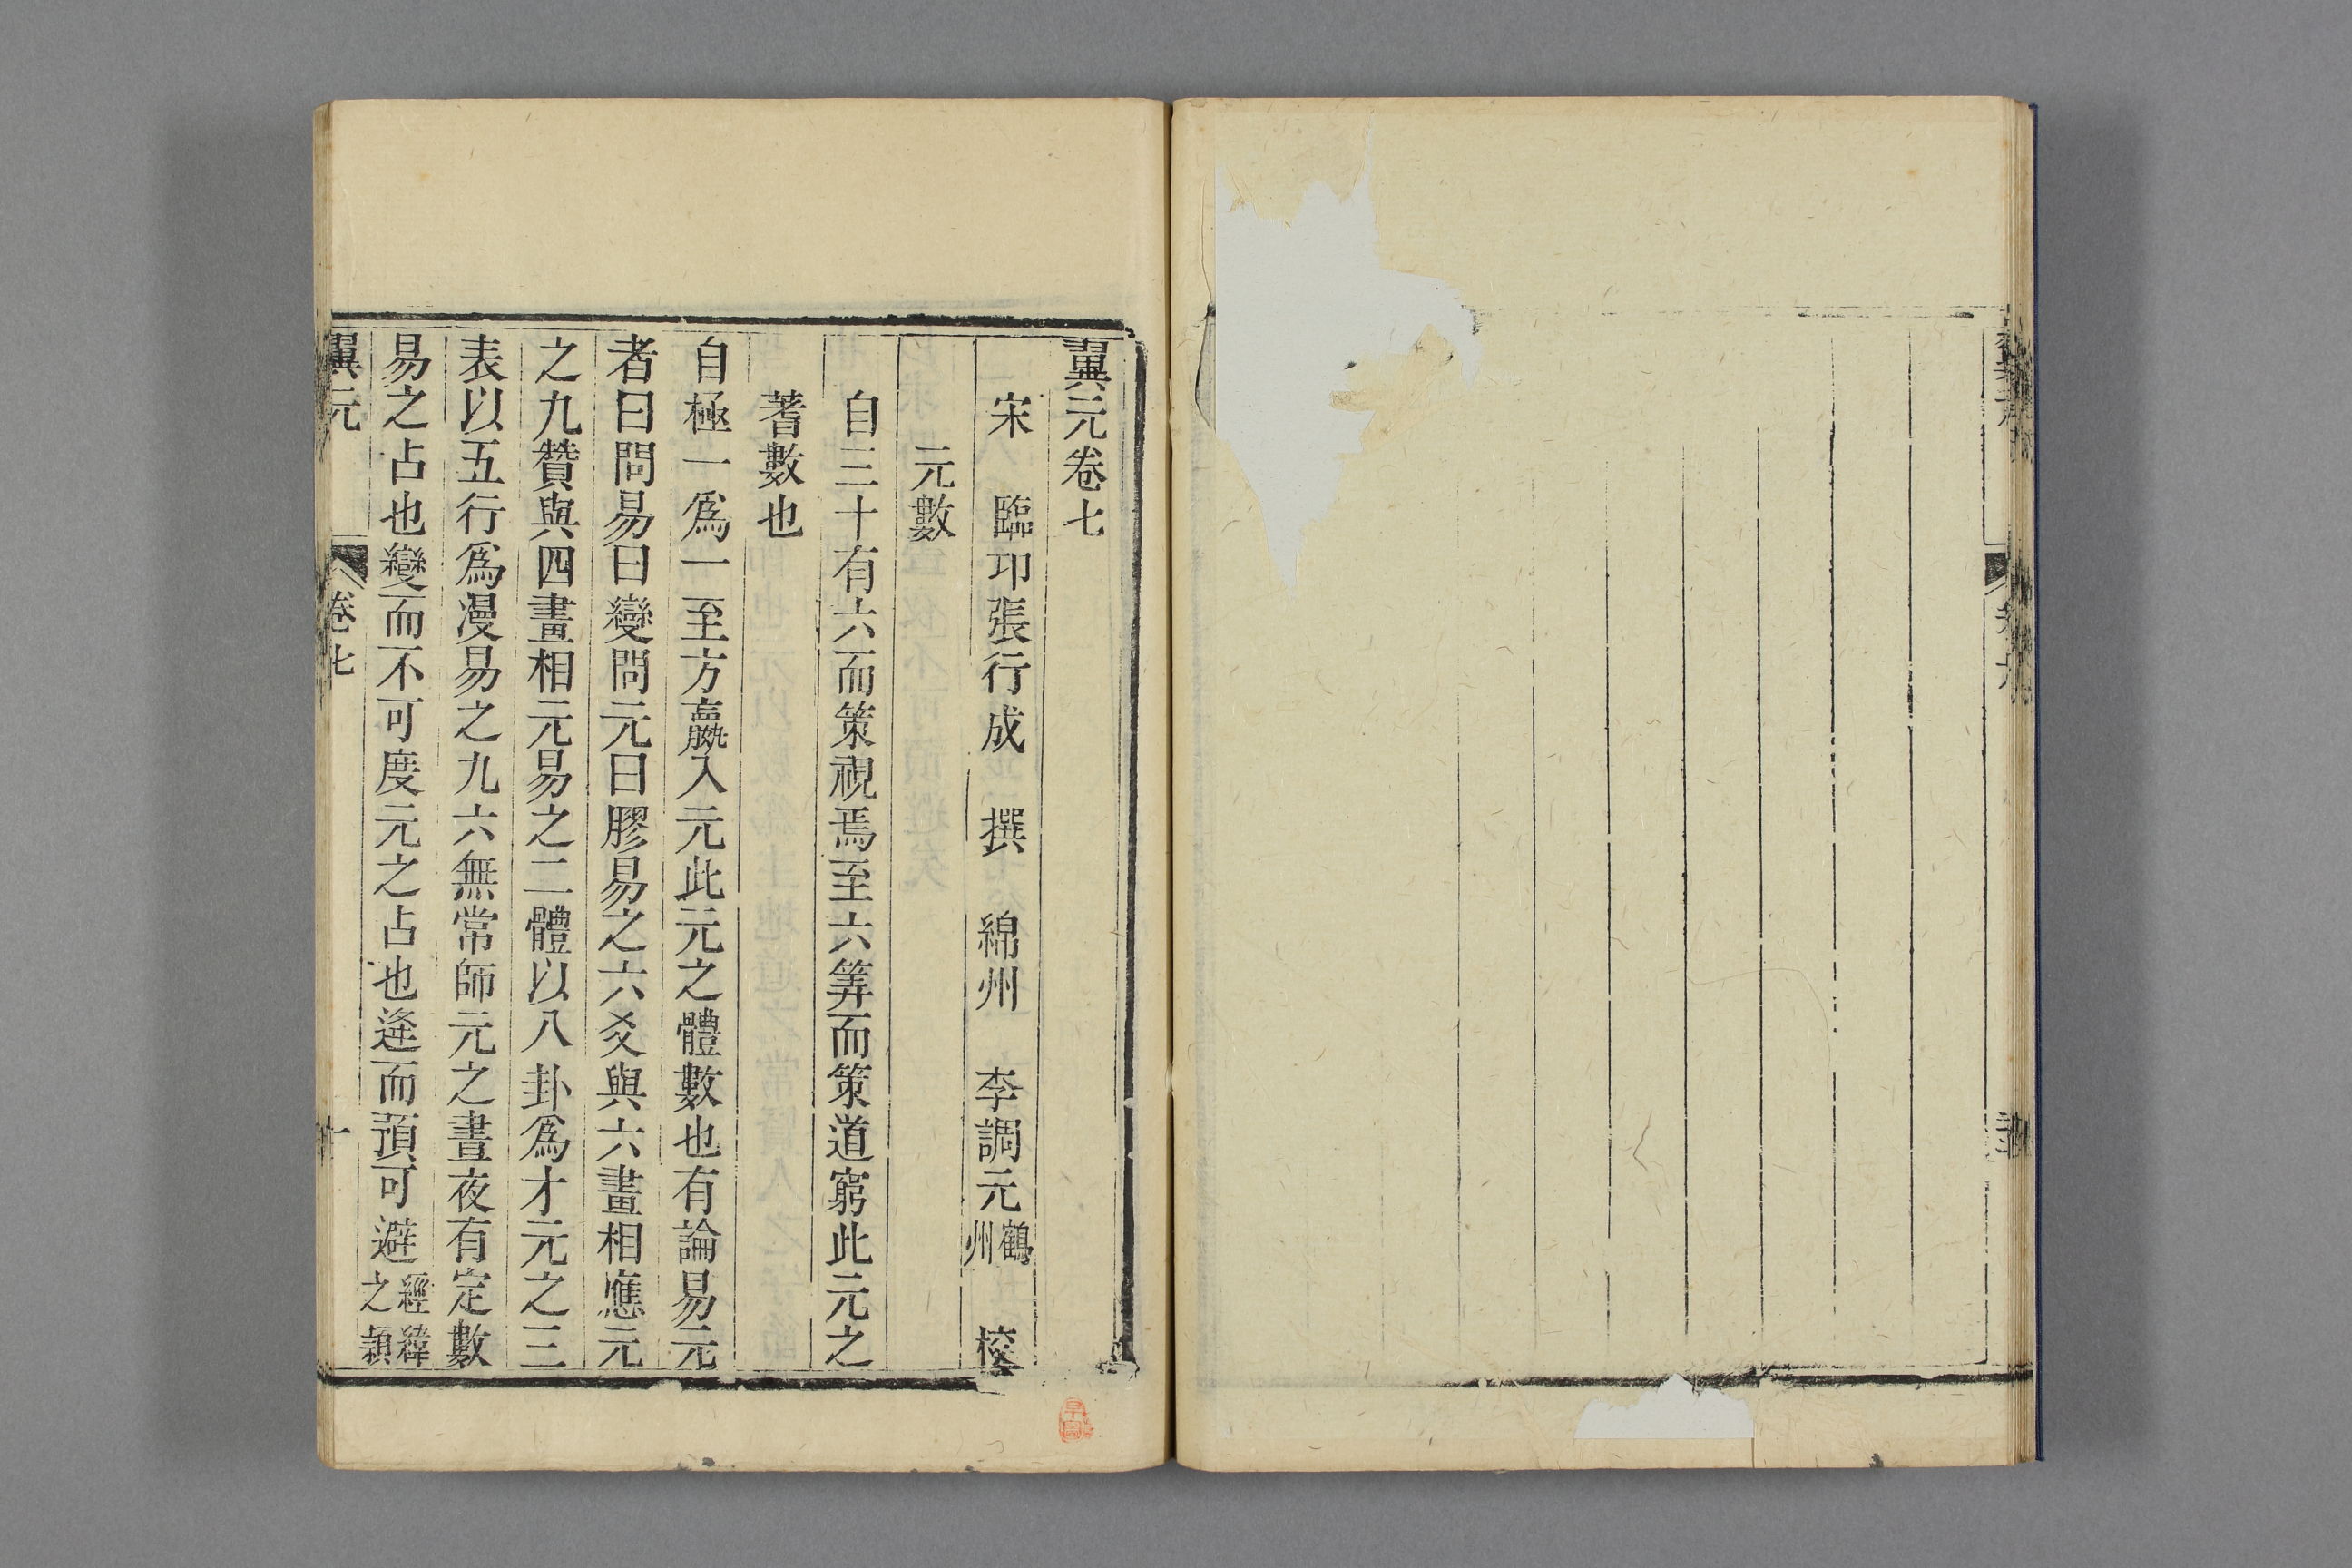 翼元卷七
宋　臨卭張行成　撰　綿州　李調元鶴州　校
元數
自三十有六而策視焉至六筭而策道窮此元之
蓍數也
自極一爲一至方嬴入元此元之體數也有論易元
者曰問易曰變問元曰膠易之六爻與六畫相應元
之九贊與四畫相元易之二體以八卦爲才元之三
表以五行爲漫易之九六無常師元之晝夜有定數
易之占也變而不可度元之占也逄而預可避經緯之類
翼元　卷七　一